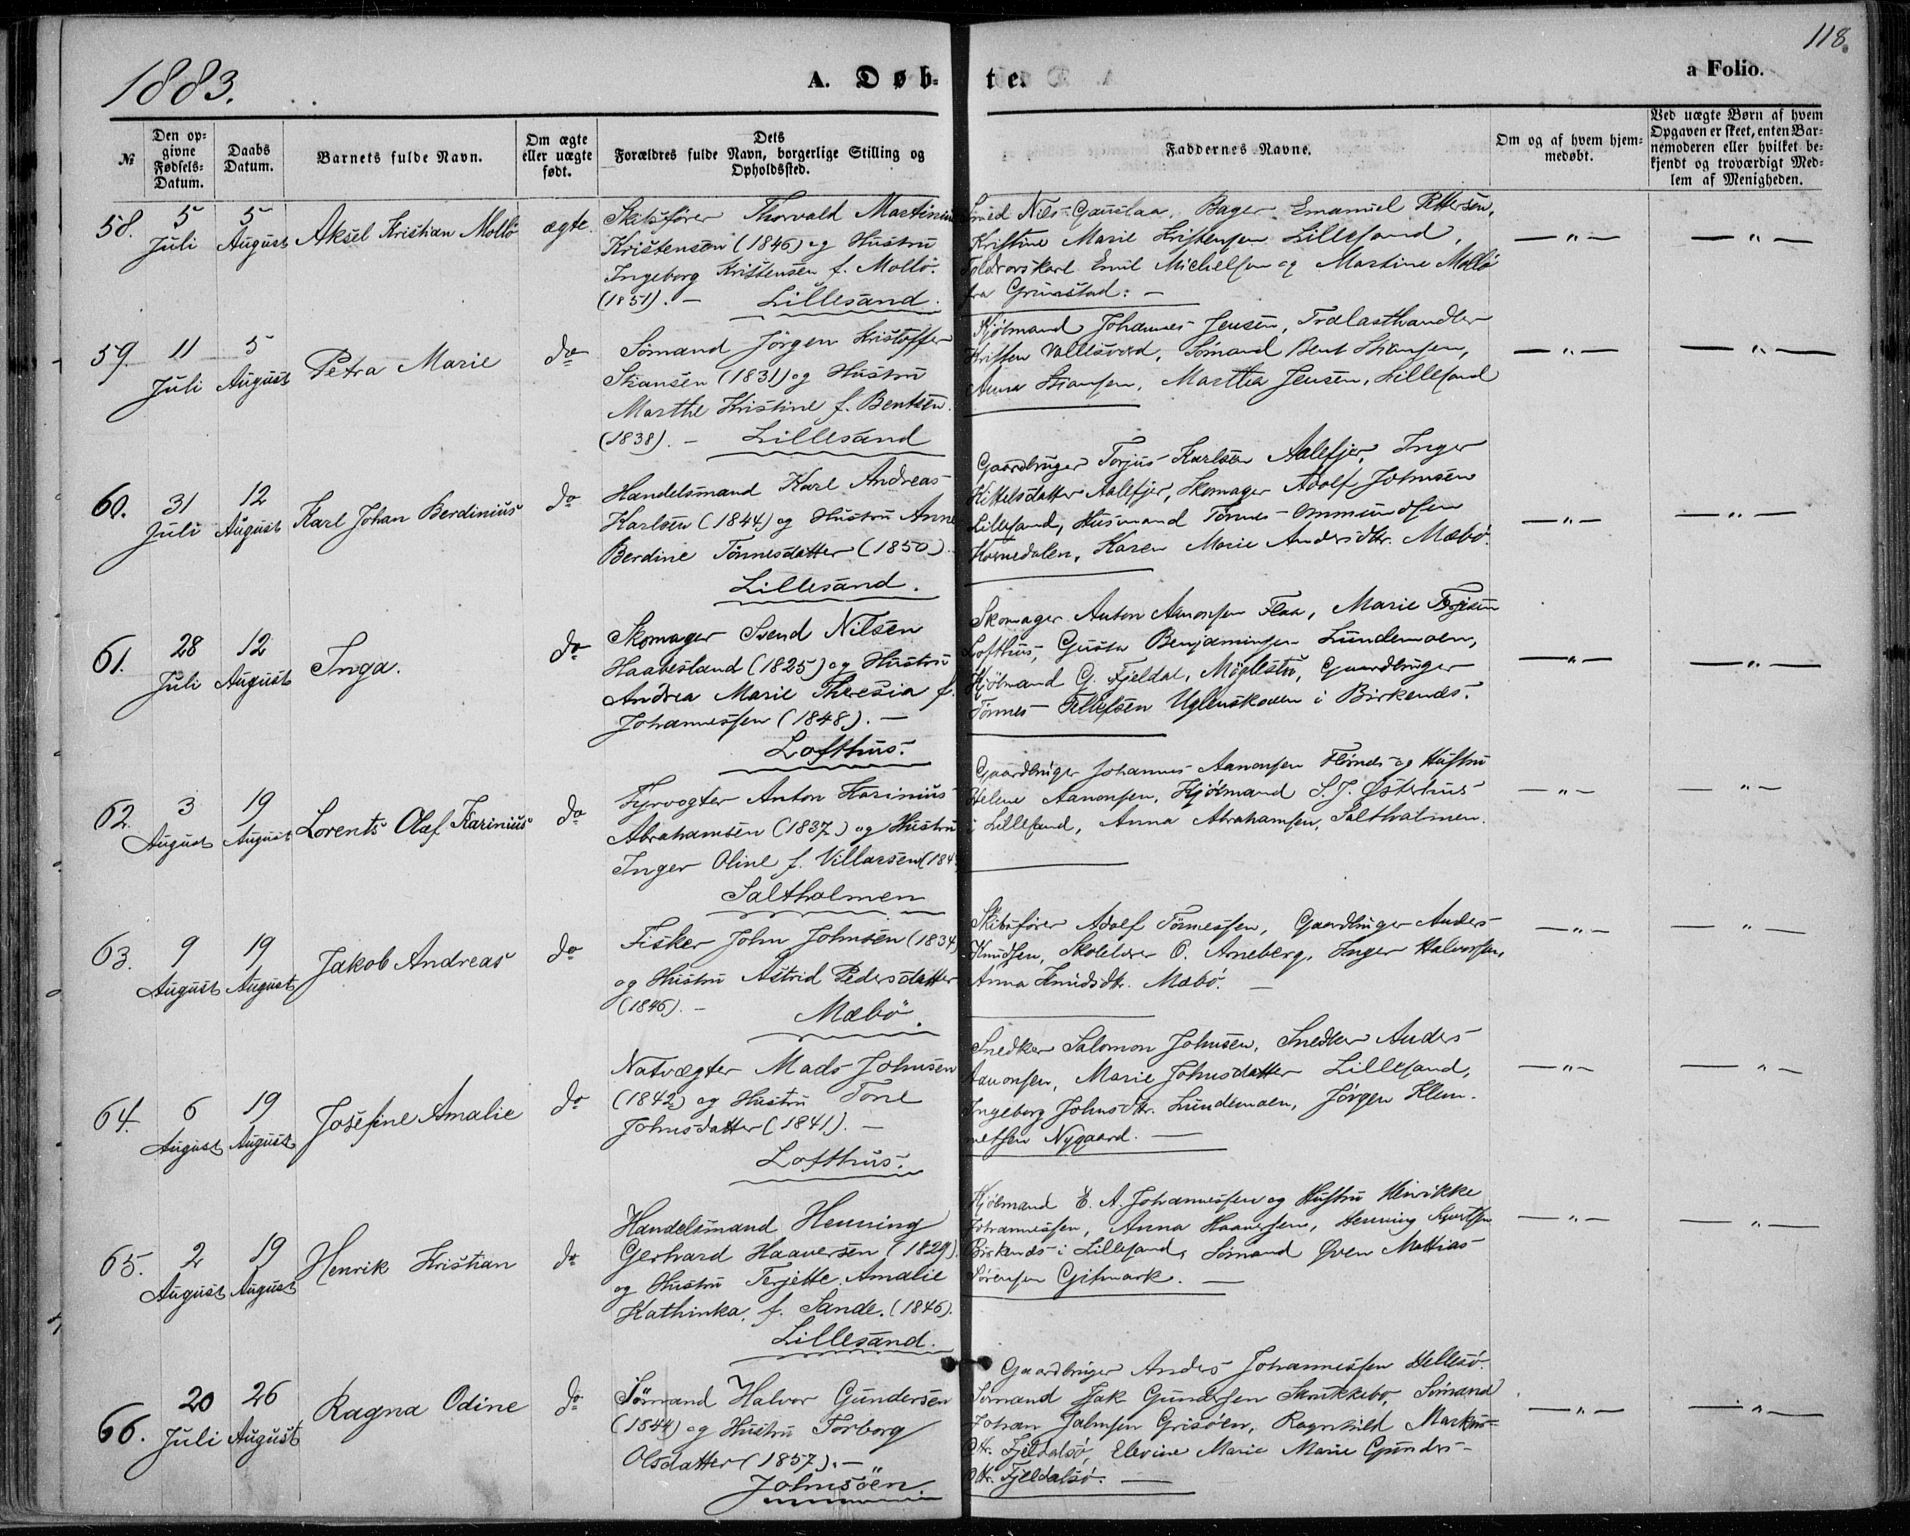 1883.
A. Døbte.
118.
a Folio.
№
Den opgivne Fødsels-Datum.
Daabs Datum.
Barnets fulde Navn.
Om ægte eller uægte født.
Dets Forældres fulde Navn, borgerlige Stilling og Opholdssted.
Faddernes Navne.
Om og af hvem hjemmedøbt.
Ved uægte Børn af hvem Opgaven er skeet, enten Barnemoderen eller hvilket bekjendt og troværdigt Medlem af Menigheden.
58.
5 Juli
5 August
Aksel Kristian Mollö
ægte.
Skibsfører Thorvald Martinius
Kristensen (1846) og Hustru
Ingeborg Kristensen f. Mollö.
(1851). — Lillesand.
Smed Nils Gauslaa, Bager Emanuel Pettersen,
Kristine Marie Kristensen Lillesand,
Toldrorskarl Emil Michelsen og Martine Mollö
fra Grimstad. —
— „ —
— „ —
59.
11 Juli
5 August
Petra Marie
do
Sömand Jörgen Kristoffer
Skansen (1831) og Hustru
Marthe Kristine f. Bentsen.
(1838). — Lillesand
Kjöbmand Johannes Jensen, Trælasthandler
Kristen Vallesverd, Sömand Bent Skansen,
Anna Skansen, Martha Jensen, Lillesand
— „ —
— „ —
60.
31 Juli
12 August
Karl Johan Berdinius
do
Handelsmand Karl Andreas
Karlsen (1844) og Hustru Anne
Berdine Tönnesdatter (1850).
Lillesand.
Gaardbruger Torjus Karlsen Aalefjær, Inger
Kittelsdatter Aalefjær, Skomager Adolf Johnsen
Lillesand, Husmand Tönnes Ommundsen
Karen Marie Andersdtr. Mæbö.
— „ —
— „ —
61.
28 Juli
12 August
Inga.
do
Skomager Svend Nilsen
Haabesland (1825) og Hustru
Andrea Marie Theresia f.
Johannessen (1848). —
Lofthus.
Skomager Anton Aanonsen Flaa, Marie
Lofthus, Gusta Benjaminsen Lundemoen,
Kjöbmand G. Fjeldal, Möglestu, Gaardbruger
Tönnes Tellefsen Uglenskoven i Birkenes.
— „ —
— „ —
62.
3 August
19 August
Lorents Olaf Karinius
do
Fyrvogter Anton Karinius
Abrahamsen (1837) og Hustru
Inger Oline f. Villarsen (184
Saltholmen
Gaardbruger Johannes Aanonsen og Hustru
Helene Aanonsen, Kjöbmand S. J. Østerhus
i Lillesand, Anna Abrahamsen, Saltholmen.
— „ —
— „ —
63.
9 August
19 August
Jakob Andreas
do
Fisker John Johnsen (1834)
og Hustru Astrid Pedersdatter
(1846). — Mæbö.
Skibsfører Adolf Tönnessen, Gaardbruger Anders
Knudsen, Skolelærer O. Arneberg, Inger Halvorsen,
Anna Knudsdtr. Mæbö. —
— „ —
— „ —
64.
6 August
19 August
Josefine Amalie
do
Natvægter Mads Johnsen
(1842) og Hustru Tone
Johnsdatter (1841). —
Lofthus.
Snedker Salomon Johnsen, Snedker Anders
Aanonsen, Marie Johnsdatter Lillesand,
Ingeborg Johnsdtr. Lundemoen, Jörgen Klem-
metsen Nygaard. —
— „ —
— „ —
65.
2 August
19 August
Henrik Kristian
do
Handelsmand Henning
Gerhard Haaversen (1829).
og Hustru Terjette Amalie
Kathinka f. Sande. (1846).
Lillesand.
Kjöbmand E. A. Johannessen og Hustru Henrikke
Johannessen, Anna Haaversen, Henning
Birkenes i Lillesand, Sömand Oven Mathias
Sörensen Gitmark. —
— „ —
— „ —
66.
20 Juli
26 August
Ragna Odine
do
Sömand Halvor Gundersen
(1844) og Hustru Torborg
Olsdatter (1857). —
Johnsöen
Gaardbruger Anders Johannessen Hellesö.
Sömand Isak Gundersen Skukkebo, Sömand
Johan Jahnsen Grisöen, Ragnhild Markus-
dtr. Fjeldalsö, Elevine Marie Marie Gunders-
dtr. Fjeldalsö. —
— „ —
— „ —